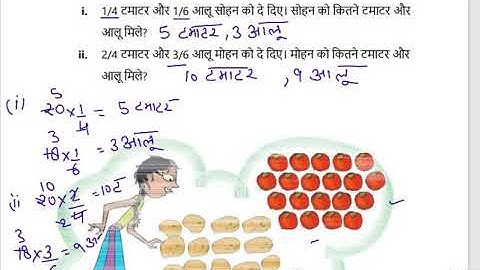 i. 1/4 टमाटर और 1/6 आलू सोहन को दे दिए। सोहन को कितने टमाटर और
आलू मिले? 5 टमाटर, 3 आलू
ii. 2/4 टमाटर और 3/6 आलू मोहन को दे दिए। मोहन को कितने टमाटर और
आलू मिले? 10 टमाटर, 9 आलू
(i) 5
20 × 1/4 = 5 टमाटर
3
18 × 1/6 = 3 आलू
ii 10
20 × 2/4 = 10 ट
3
18 × 3/6 = 9 आ